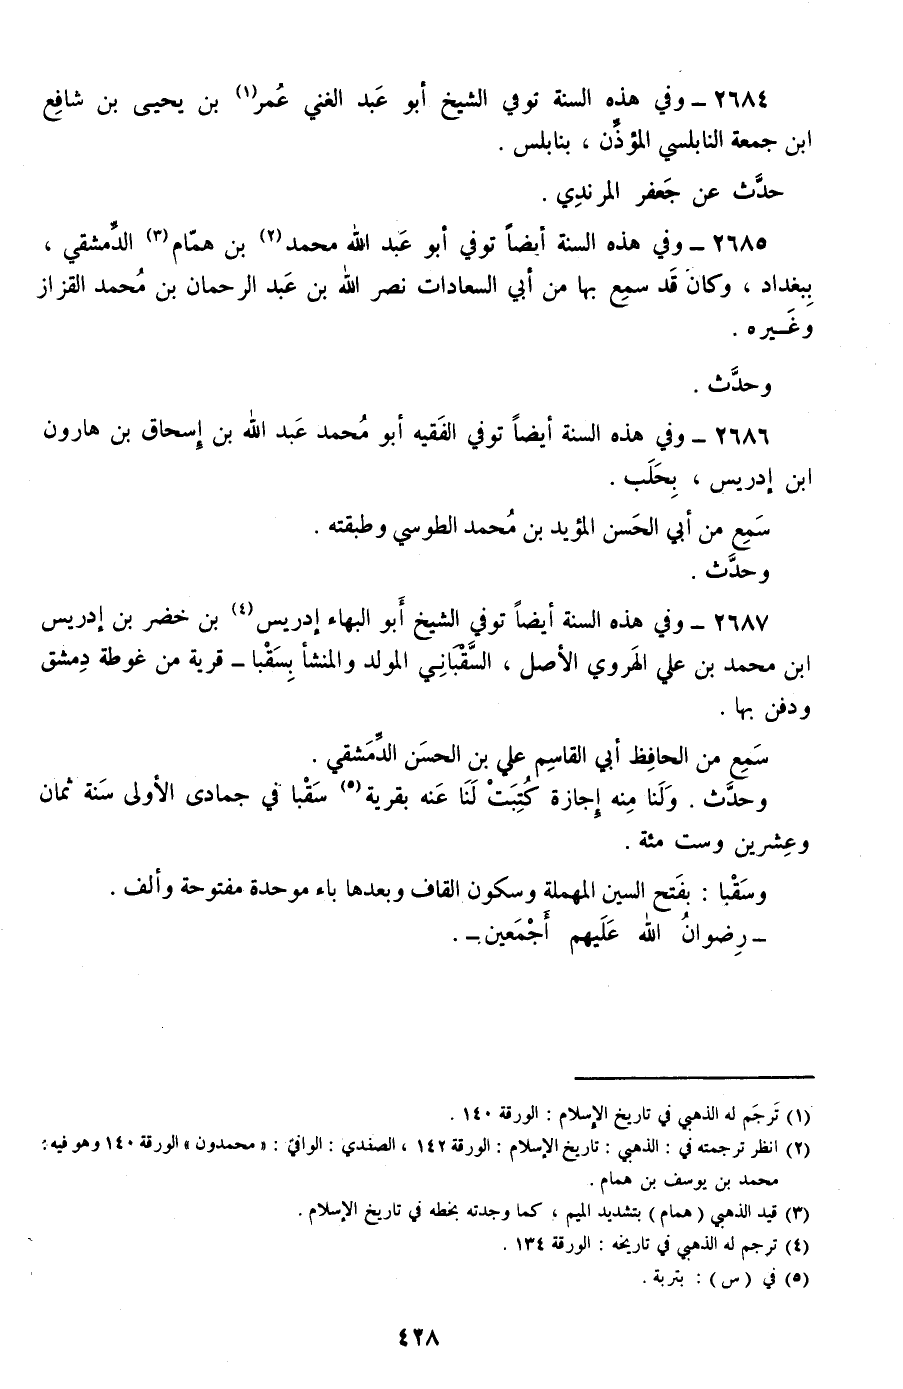 ٢٦٨٤ ـ وفي هذه السنة توفي الشيخ أبو عَبد الغني عُمر(١) بن يحيى بن شافِع
ابن جمعة النابلسي المؤذِّن ، بنابلس .
حدَّث عن جَعفر المرندِي .
٢٦٨٥ ـ وفي هذه السنة أيضاً توفي أبو عَبد الله محمد(٢) بن همّام(٣) الدِّمشقي ،
بِبغداد ، وكانَ قَد سمِع بها من أبي السعادات نصر الله بن عَبد الرحمان بن مُحمد القزاز
وغَـيره .
وحدَّث .
٢٦٨٦ ـ وفي هذه السنة أيضاً توفي الفَقيه أبو مُحمد عَبد الله بن إسحاق بن هارون
ابن إدريس ، بِحَلَب .
سَمِع من أبي الحَسن المؤيد بن مُحمد الطوسي وطبقته .
وحدَّث .
٢٦٨٧ ـ وفي هذه السنة أيضاً توفي الشيخ أَبو البهاء إدريس(٤) بن خضر بن إدريس
ابن محمد بن علي الهَروي الأصل ، السَّقْبَانِي المولد والمنشأ بِسَقْبا ـ قرية من غوطة دِمشق
ودفن بها .
سَمِع من الحافِظ أبي القاسِم علي بن الحسَن الدِّمَشقي .
وحدَّث . وَلَنا مِنه إِجازة كُتِبَتْ لَنَا عَنه بقرية(٥) سَقْبا في جمادى الأولى سَنة ثمان
وعِشرين وست مئة .
وسَقْبا : بفَتح السين المهملة وسكون القاف وبعدها باء موحدة مفتوحة وألف .
ـ رِضوانُ الله عَلَيهم أَجْمَعين ـ .
(١) تَرجَم له الذهبي في تاريخ الإسلام : الورقة ١٤٠ .
(٢) انظر ترجمته في : الذهبي : تاريخ الإسلام : الورقة ١٤٢ ، الصفدي : الوافي : « محمدون » الورقة ١٤٠ وهو فيه :
محمد بن يوسف بن همام .
(٣) قيد الذهبي ( همام ) بتشديد الميم ، كما وجدته بخطه في تاريخ الإسلام .
(٤) ترجم له الذهبي في تاريخه : الورقة ١٣٤ .
(٥) في ( س ) : بتربة .
٤٣٨